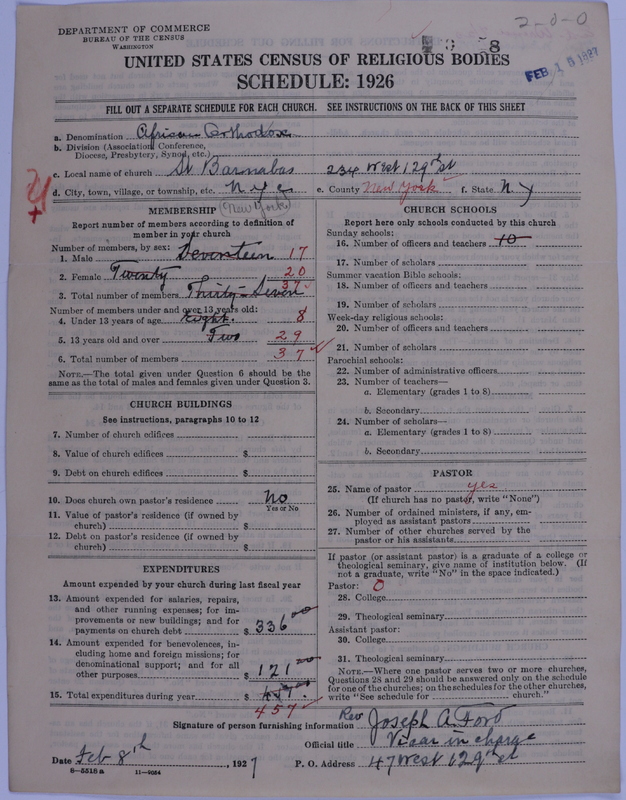 DEPARTMENT OF COMMERCE
BUREAU OF THE CENSUS
WASHINGTON
2-0-0
8
FEB 1 5 1927
UNITED STATES CENSUS OF RELIGIOUS BODIES
SCHEDULE: 1926
FILL OUT A SEPARATE SCHEDULE FOR EACH CHURCH. SEE INSTRUCTIONS ON THE BACK OF THIS SHEET
a. Denomination African Orthodox
b. Division (Association, Conference,
Diocese, Presbytery, Synod, etc.)
c. Local name of church St Barnabas 234 West 129th st
d. City, town, village, or township, etc. N.Y.C. e. County New York f. State N.Y
(New York)
MEMBERSHIP
Report number of members according to definition of
member in your church
Number of members, by sex:
1. Male Seventeen 17
2. Female Twenty 20
3. Total number of members Thirty-Seven 37
Number of members under and over 13 years old:
4. Under 13 years of age eight 8
5. 13 years old and over Two 29
6. Total number of members 37
NOTE.—The total given under Question 6 should be the
same as the total of males and females given under Question 3.
CHURCH BUILDINGS
See instructions, paragraphs 10 to 12
7. Number of church edifices
8. Value of church edifices $
9. Debt on church edifices $
10. Does church own pastor's residence No
Yes or No
11. Value of pastor's residence (if owned by
church) $
12. Debt on pastor's residence (if owned by
church) $
EXPENDITURES
Amount expended by your church during last fiscal year
13. Amount expended for salaries, repairs,
and other running expenses; for im-
provements or new buildings; and for
payments on church debt $ 336 00
14. Amount expended for benevolences, in-
cluding home and foreign missions; for
denominational support; and for all
other purposes $ 121 00
15. Total expenditures during year $
457
CHURCH SCHOOLS
Report here only schools conducted by this church
Sunday schools:
16. Number of officers and teachers 10
17. Number of scholars
Summer vacation Bible schools:
18. Number of officers and teachers
19. Number of scholars
Week-day religious schools:
20. Number of officers and teachers
21. Number of scholars
Parochial schools:
22. Number of administrative officers
23. Number of teachers—
a. Elementary (grades 1 to 8)
b. Secondary
24. Number of scholars—
a. Elementary (grades 1 to 8)
b. Secondary
PASTOR
25. Name of pastor yes
(If church has no pastor, write "None")
26. Number of ordained ministers, if any, em-
ployed as assistant pastors
27. Number of other churches served by the
pastor or his assistants
If pastor (or assistant pastor) is a graduate of a college or
theological seminary, give name of institution below. (If
not a graduate, write "No" in the space indicated.)
Pastor: 0
28. College
29. Theological seminary
Assistant pastor:
30. College
31. Theological seminary
NOTE.—Where one pastor serves two or more churches,
Questions 28 and 29 should be answered only on the schedule
for one of the churches; on the schedules for the other churches,
write "See schedule for church."
Signature of person furnishing information Rev Joseph A Ford
Official title Vicar in charge
Date Feb 8th, 1927 P. O. Address 47 West 129th st
8—5518 a 11—9064